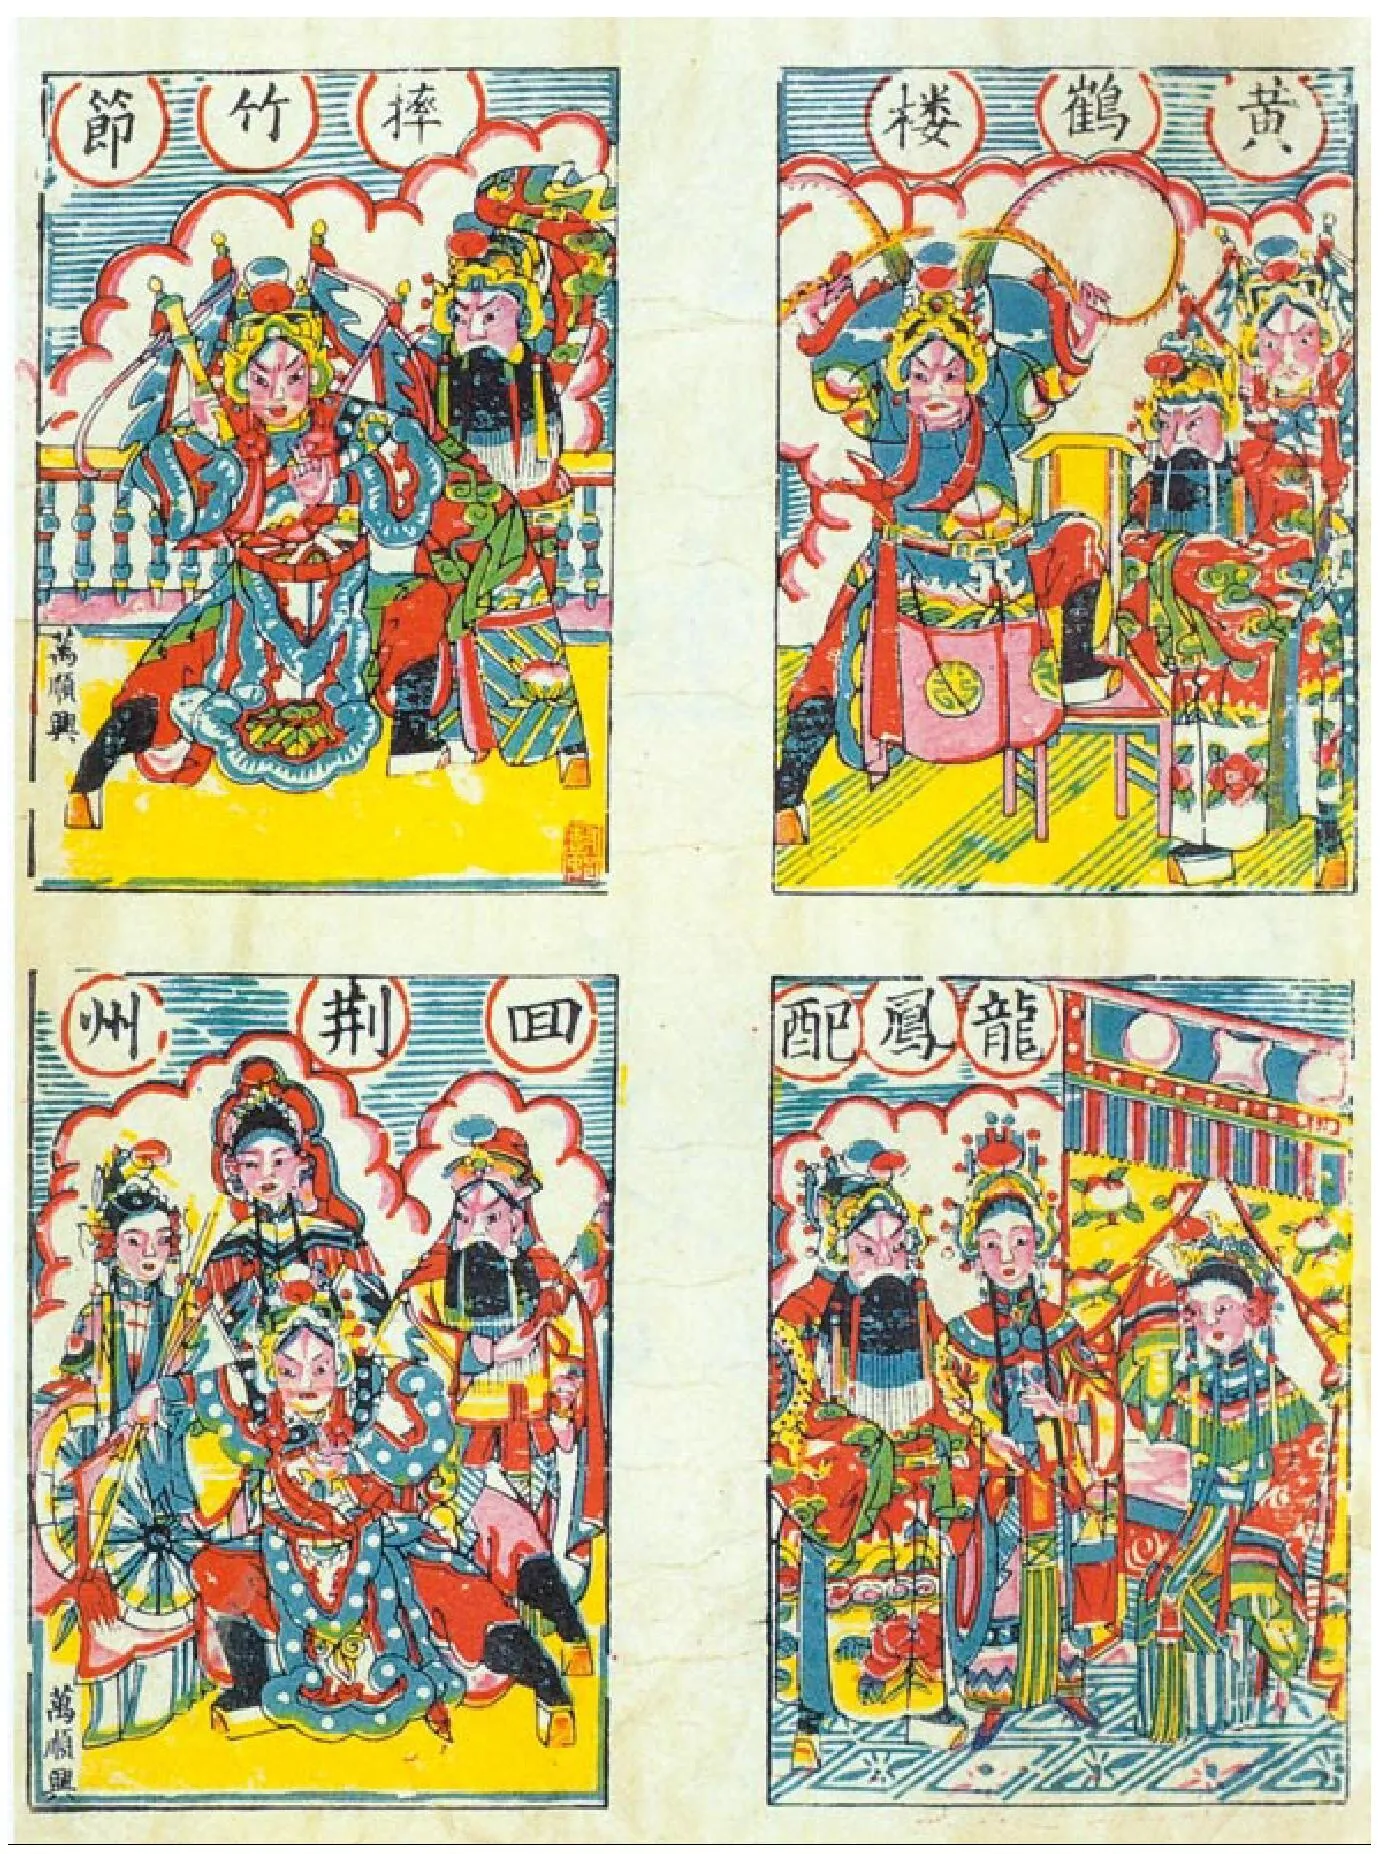 黄鶴楼
摔竹節
萬順興
龍鳳配
囬荆州
萬順興